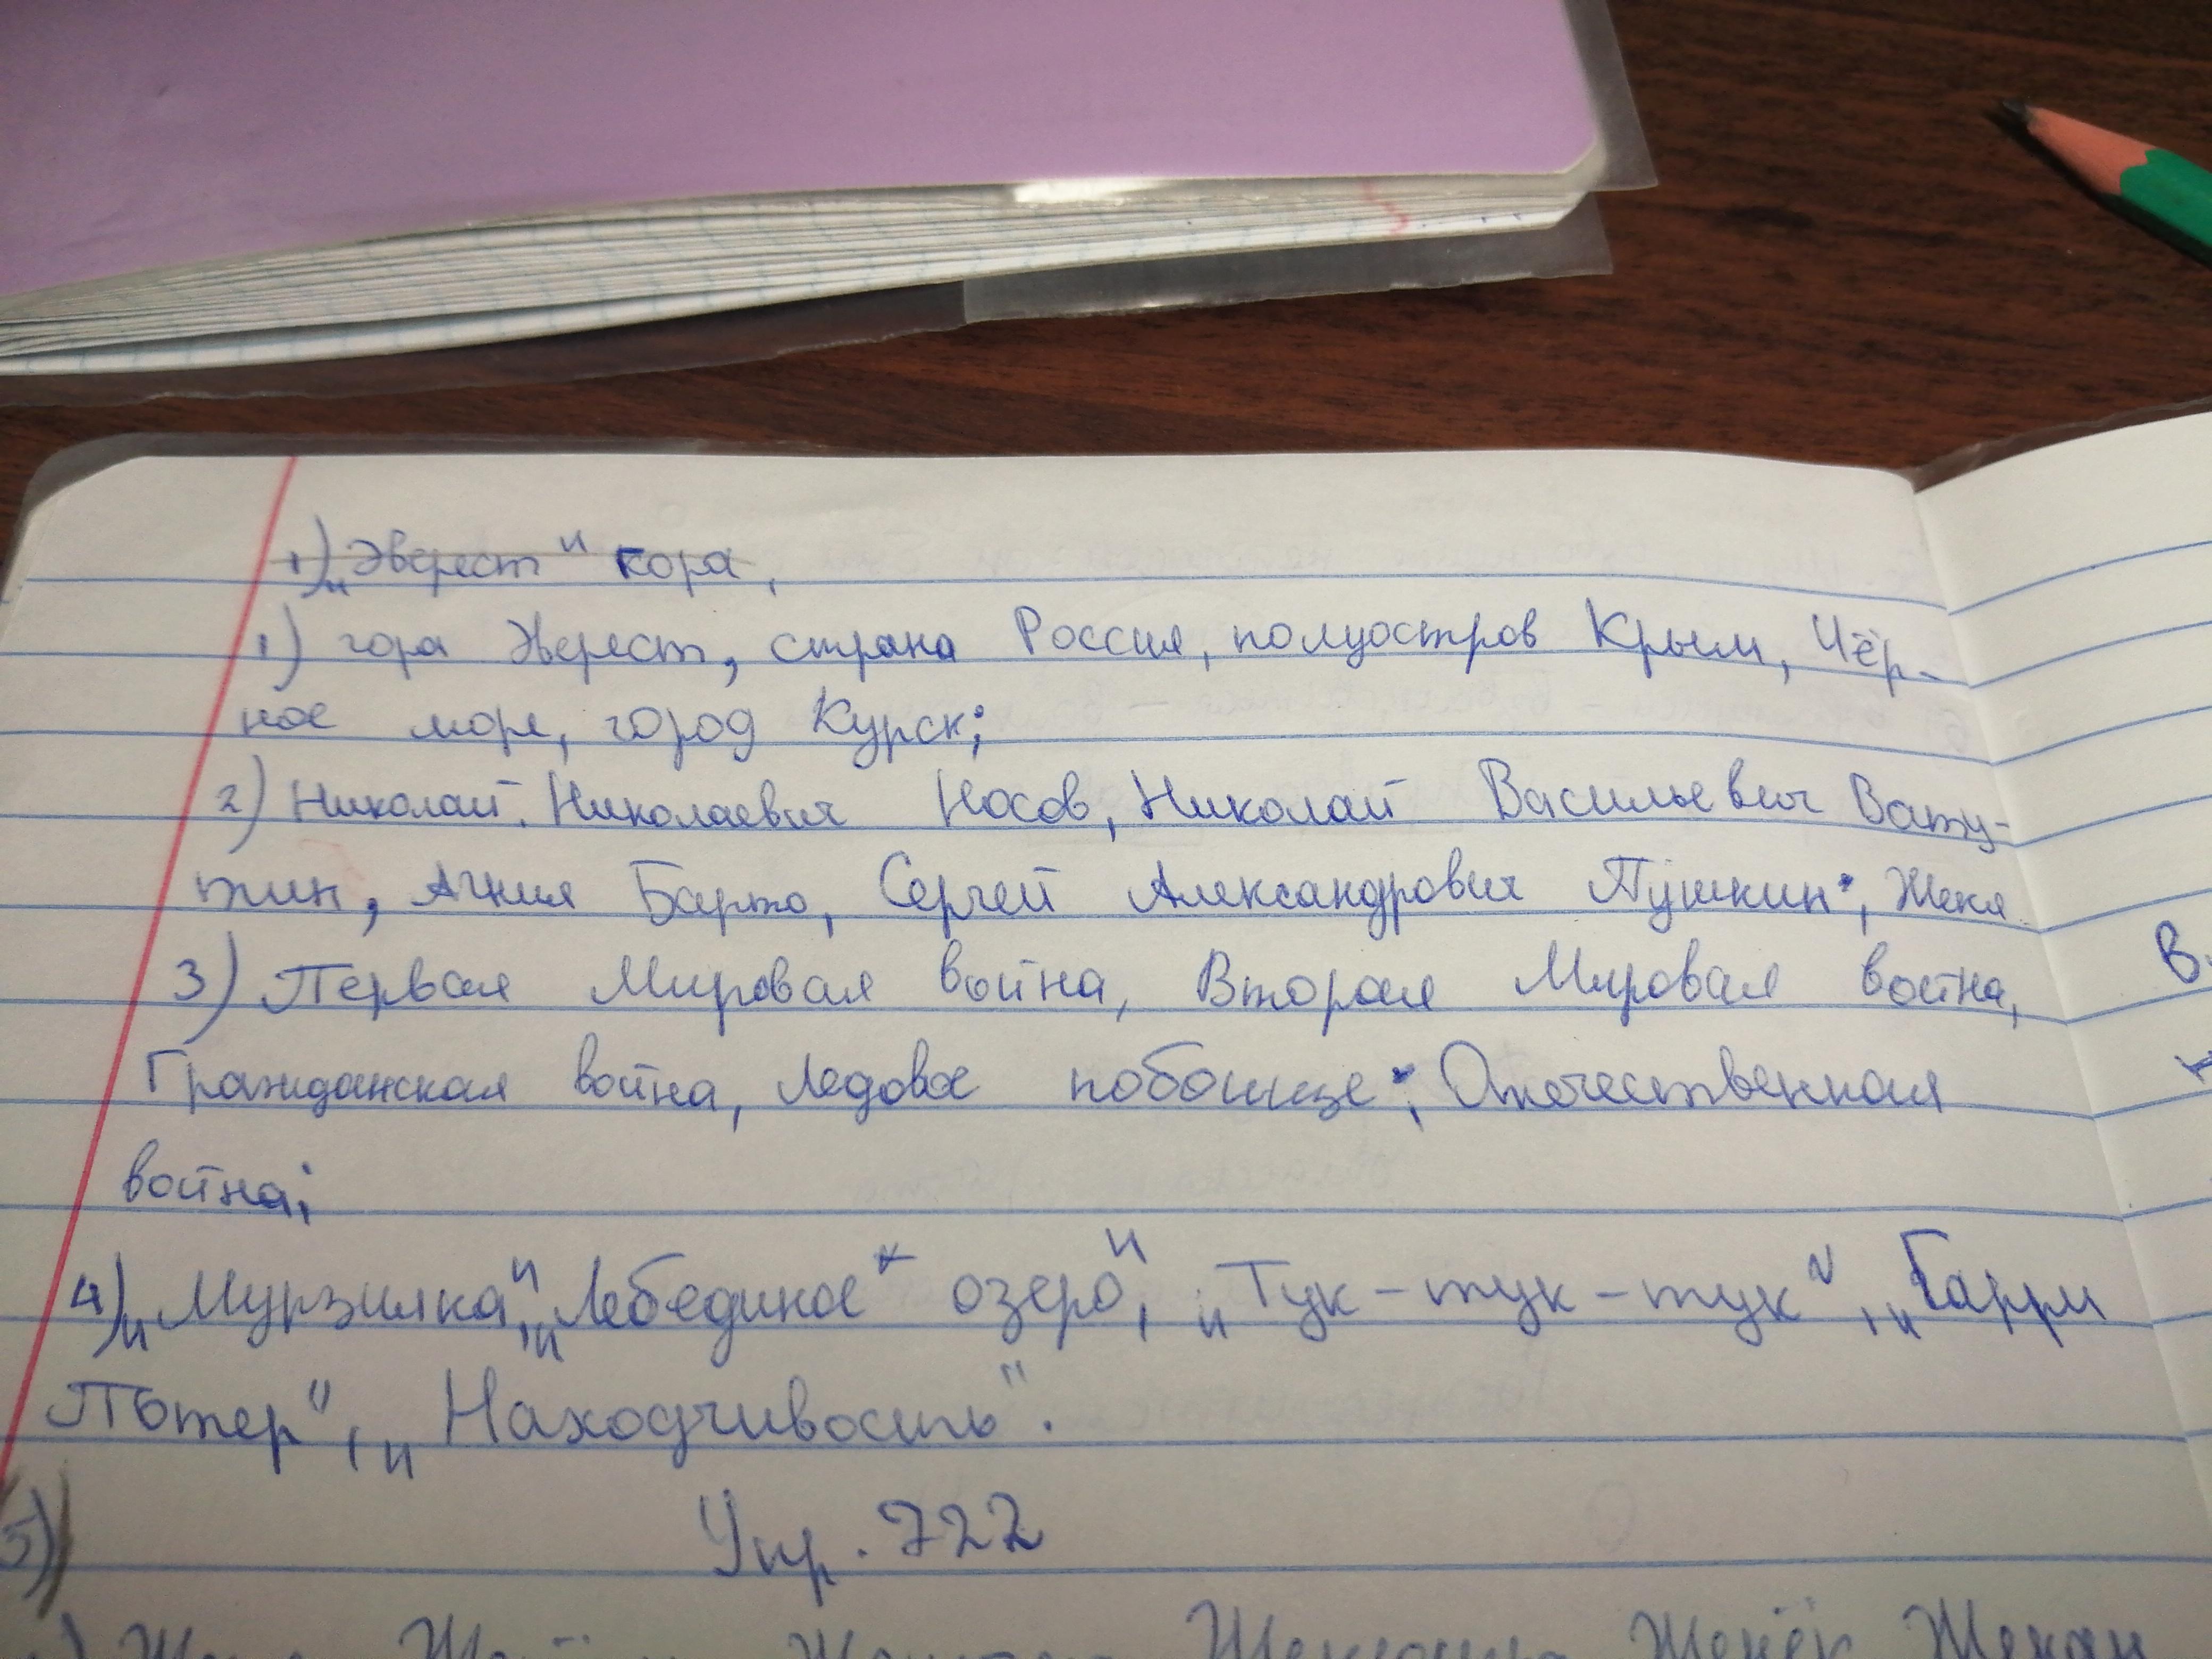 1) „Эверест" гора,
1) гора Эверест, страна Россия, полуостров Крым, Чёр-
ное море, город Курск;
2) Николай Николаевич Носов, Николай Васильевич Вату-
тин, Агния Барто, Сергей Александрович Пушкин; Женя
3) Первая Мировая война, Вторая Мировая война,
Гражданская война, Ледовое побоище; Отечественная
война;
4) „Мурзилка", „Лебединое озеро", „Тук-тук-тук", „Гарри
Потер", „Находчивость".
5) Упр. 722
В.